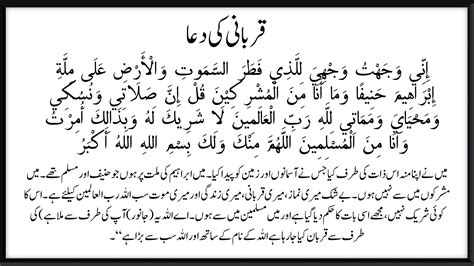 قربانی کی دعا
إِنِّي وَجَّهْتُ وَجْهِيَ لِلَّذِي فَطَرَ السَّمَوتِ وَالْأَرْضِ عَلَى مِلَّةِ
إِبْرَاهِيمَ حَنِيفًا وَمَا أَنَا مِنَ الْمُشْرِكِيْنَ قُلْ إِنَّ صَلَاتِي وَنُسُكِي
وَمَحْيَايَ وَمَمَاتِي لِلَّهِ رَبِّ الْعَالَمِينَ لَا شَرِيكَ لَهُ وَبِذَالِكَ أُمِرْتُ
وَأَنَا مِنَ الْمُسْلِمِينَ اللَّهُمَّ مِنْكَ وَلَكَ بِسْمِ اللهِ اللهُ أَكْبَرُ
میں نے اپنا منہ اس ذات کی طرف کیا جس نے آسمانوں اور زمین کو پیدا کیا۔ میں ابراہیم کی ملت پر ہوں جو حنیف اور مسلم تھے۔ میں
مشرکوں میں سے نہیں ہوں۔ بے شک میری نماز، میری قربانی، میری زندگی اور میری موت سب اللہ رب العالمین کیلئے ہے۔ اس کا
کوئی شریک نہیں، مجھے اسی بات کا حکم دیا گیا ہے اور میں مسلمین میں سے ہوں۔ اے اللہ یہ (جانور) آپ کی طرف سے ملا ہے) کی
طرف سے قربان کیا جا رہا ہے اللہ کے نام کے ساتھ اور اللہ سب سے بڑا ہے“۔